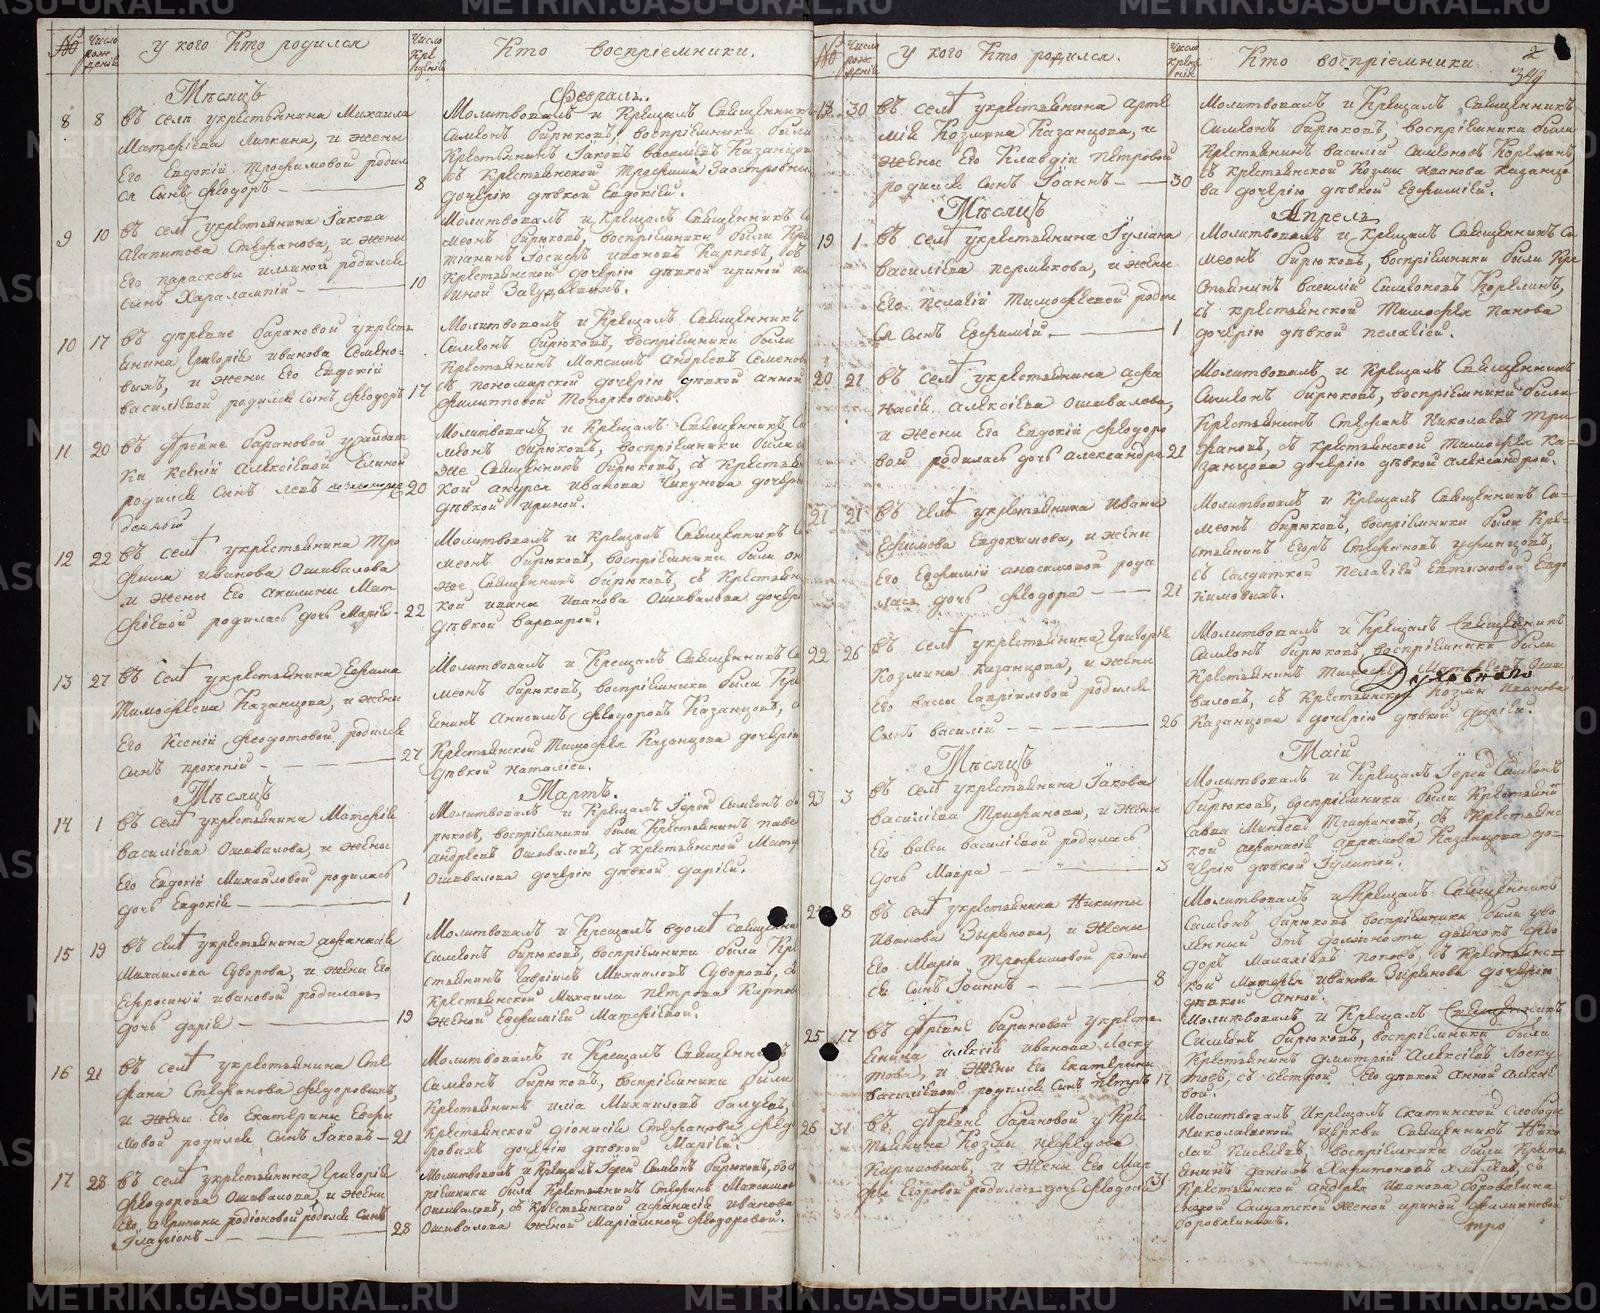 №
Число рождений
у кого Кто родился
Число крещения
Кто восприемники.
Мѣсяцъ
Февраль.
8 8 Въ селѣ укрестьянина Михаила
Матѳѣева Липкина, и жены
Его Евдокіи Трофимовой родил
ся сынъ Ѳеодоръ 8
Молитвовалъ и Крещалъ Священникъ
Симеонъ Бирюковъ, воспріемники были
Крестьянинъ Іаковъ Васильевъ Казанцов
съ Крестьянской Трофима Заостровны
дочерію дѣвкой Евдокіей.
9 10 Въ селѣ укрестьянина Іакова
Агапитова Стефанова, и жены
Его Параскевы Ильиной родился
сынъ Харалампій 10
Молитвовалъ и Крещалъ Священникъ Си
меонъ Бирюковъ, воспріемники были Крес
тьянинъ Іосифъ Ивановъ Карповъ, съ
Крестьянской дочерію дѣвкой Ириной
10 17 Въ деревне Барановой укресть
янина Григорія Иванова Семено-
выхъ, и жены Его Евдокіи
Василіевой родился сынъ Ѳеодоръ 17
Молитвовалъ и Крещалъ Священникъ
Симеонъ Бирюковъ, воспріемники были
Крестьянинъ Максимъ Андреевъ Семенов
съ пономарской дочерію дѣвкой Анной
Филипповой Топорковыхъ.
11 20 Въ деревне Барановой у салдат
ки Ксеніи Алексіевой Елиной
родился сынъ Левъ незаконорож
денный 20
Молитвовалъ и Крещалъ Священникъ Си
меонъ Бирюковъ, воспріемники были
же Священникъ Бирюковъ, съ Крестьянс
кой Андрея Иванова Чикунова дочерію
дѣвкой Ириной.
12 22 Въ селѣ укрестьянина Тро
фима Иванова Ошивалова
и жены Его Акилины Мат
фіевой родилась дочь Марія 22
Молитвовалъ и Крещалъ Священникъ Си
меонъ Бирюковъ, воспріемники были он
же Священникъ Бирюковъ, съ Крестьянс
кой Ивана Иванова Ошивалова дочерію
дѣвкой Варварой.
13 27 Въ селѣ укрестьянина Ефима
Тимофеева Казанцова, и жены
Его Ксеніи Феодотовой родился
сынъ Прокопій 27
Молитвовалъ и Крещалъ Священникъ Си
меонъ Бирюковъ, воспріемники были Крес
янинъ Анисимъ Ѳеодоровъ Казанцовъ, с
Крестьянской Тимофея Казанцова дочерію
дѣвкой Наталіей.
Мѣсяцъ
Мартъ.
14 1 Въ селѣ укрестьянина Матѳѣя
Василіева Ошивалова, и жены
Его Евдокіи Михайловой родилась
дочь Евдокія 1
Молитвовалъ и Крещалъ Іерей Симеонъ Би
рюковъ, воспріемники были Крестьянинъ Паве
Андреевъ Ошиваловъ, съ крестьянской
Ошивалова дочерію дѣвкой Даріей.
15 19 Въ селѣ укрестьянина Афанасія
Михайлова Суворова, и жены Его
Ефросиніи Ивановой родилась
дочь Дарія 19
Молитвовалъ и Крещалъ вдолѣ Священни
Симеонъ Бирюковъ, воспріемники были Кре
стьянинъ Гавріилъ Михайловъ Суворовъ, с
Крестьянской Михаила Петрова Карпов
женой Евфиміей Матфіевой.
16 21 Въ селѣ укрестьянина Сте
фана Стефанова Ѳедоровыхъ,
и жены Его Екатерины Ефи
мовой родился сынъ Іаковъ 21
Молитвовалъ и Крещалъ Священникъ
Симеонъ Бирюковъ, воспріемники были
Крестьянинъ Иліа Михайловъ
Крестьянской Діонисія Стефанова Ѳед
ровыхъ дочерію дѣвкой Маріей.
17 28 Въ селѣ укрестьянина Григорія
Ѳеодорова Ошивалова, и жены
Его, Агрипины Родіоновой родился сынъ
Иларіонъ 28
Молитвовалъ и Крещалъ Іерей Симеонъ Бирюковъ, вос
пріемники были Крестьянинъ Стефанъ Максимов
Ошиваловъ, съ крестьянской Афанасія Иванова
Ошивалова женой Маріамной Ѳеодоровой.
№
Число рождений
у кого Кто родился.
Число крещения
Кто воспріемники
2
349
18 30 Въ селѣ укрестьянина Арте
мія Козмина Казанцова, и
жены Его Клавдіи Петровой
родился сынъ Іоаннъ 30
Молитвовалъ и Крещалъ Священникъ
Симеонъ Бирюковъ, воспріемники были
Крестьянинъ Василій Симеоновъ Корелинъ
съ крестьянской Козмы Иванова Казанцо
ва дочерію дѣвкой Евфиміей.
Мѣсяцъ
Апрель
19 1 Въ селѣ укрестьянина Іуліана
Василіева Пермякова, и жены
Его Пелагіи Тимофеевой роди
ся сынъ Евфимій 1
Молитвовалъ и Крещалъ Священникъ Си
меонъ Бирюковъ, воспріемники были Кре
стьянинъ Василій Симеоновъ Корелинъ,
съ крестьянской Тимофея Панова
дочерію дѣвкой Пелагіей.
20 21 Въ селѣ укрестьянина Афа
насія Алексіева Ошивалова,
и жены Его Евдокіи Ѳеодоро
вой родилась дочь Александра 21
Молитвовалъ, и Крещалъ Священникъ
Симеонъ Бирюковъ, воспріемники были
Крестьянинъ Стефанъ Николаевъ Три
фановъ, съ крестьянской Тимофея Ка-
занцова дочерію дѣвкой Александрой.
21 21 Въ селѣ укрестьянина Ивана
Ефимова Евдокимова, и жены
Его Евфиміи Анисимовой роди
лась дочь Ѳеодора 21
Молитвовалъ и Крещалъ Священникъ Си-
меонъ Бирюковъ, воспріемники были Кре-
стьянинъ Егоръ Стефановъ Уфинцовъ,
съ Салдаткой Пелагіей Евтиховой Евдо
кимовыхъ.
22 26 Въ селѣ укрестьянина Григорія
Козмина Казанцова, и жены
Его Вассы Гавріиловой родился
сынъ Василій 26
Молитвовалъ и Крещалъ Священникъ
Симеонъ Бирюковъ, воспріемники были
Крестьянинъ Тимофей Матфеевъ Оши
валовъ, съ Крестьянской Козмы Иванова
Казанцова дочерію дѣвкой Даріей.
Духовнаго
Мѣсяцъ
Маій
23 3 Въ селѣ укрестьянина Іакова
Василіева Трифанова, и жены
Его Вассы Василіевой родилась
дочь Мавра 3
Молитвовалъ и Крещалъ Іерей Симеонъ
Бирюковъ, воспріемники были Крестьянинъ
Савва Минѣевъ Трифановъ, съ Крестьянс
кой Афанасія Аврамова Казанцова до-
черію дѣвкой Іулитой.
8 Въ селѣ укрестьянина Никиты
Иванова Зырянова, и жены
Его Маріи Трофимовой родил
ся сынъ Іоаннъ 8
Молитвовалъ и Крещалъ Священникъ
Симеонъ Бирюковъ воспріемники были уво
ленный отъ должности дьячокъ Фео
доръ Малахіевъ Поповъ, съ Крестьянс=
кой Матфея Иванова Зырянова дочерію
дѣвкой Анной.
25 17 Въ деревне Барановой укресть
янина Алексія Иванова Лоску
това, и жены Его Екатерины
Василіевой родился сынъ Петръ 17
Молитвовалъ и Крещалъ Священникъ
Симеонъ Бирюковъ, воспріемники были
Крестьянинъ Димитрій Алексіевъ Лоску
товъ, съ сестрой Его дѣвкой Анной Алексіе
вой.
26 31 Въ деревне Барановой у Кре
стьянина Козмы Нефедова
Кириловыхъ, и жены Его Мар
фы Егоровой родилась дочь Ѳеодосія 31
Молитвовалъ Икрещалъ Скатинской слободы
Николаевской церкви Священникъ
воспріемники были Кресть
янинъ Даніилъ Харитоновъ съ
Крестьянской Андрея Иванова Боровкина
Салдатской женой Ириной Филипповой
Боровкиныхъ.
тро
METRIKI.GASO-URAL.RU